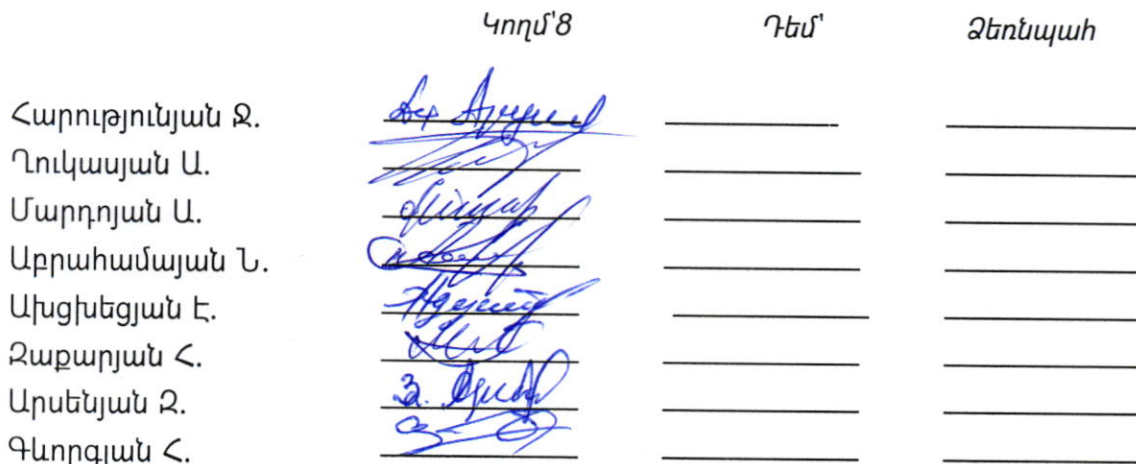 Կողմ՝8 Դեմ՝ Ձեռնպահ
Հարությունյան Ջ.
Ղուկասյան Ա.
Մարդոյան Ա.
Աբրահամայան Ն.
Ախցխեցյան Է.
Զաքարյան Հ.
Արսենյան Զ.
Գևորգյան Հ.